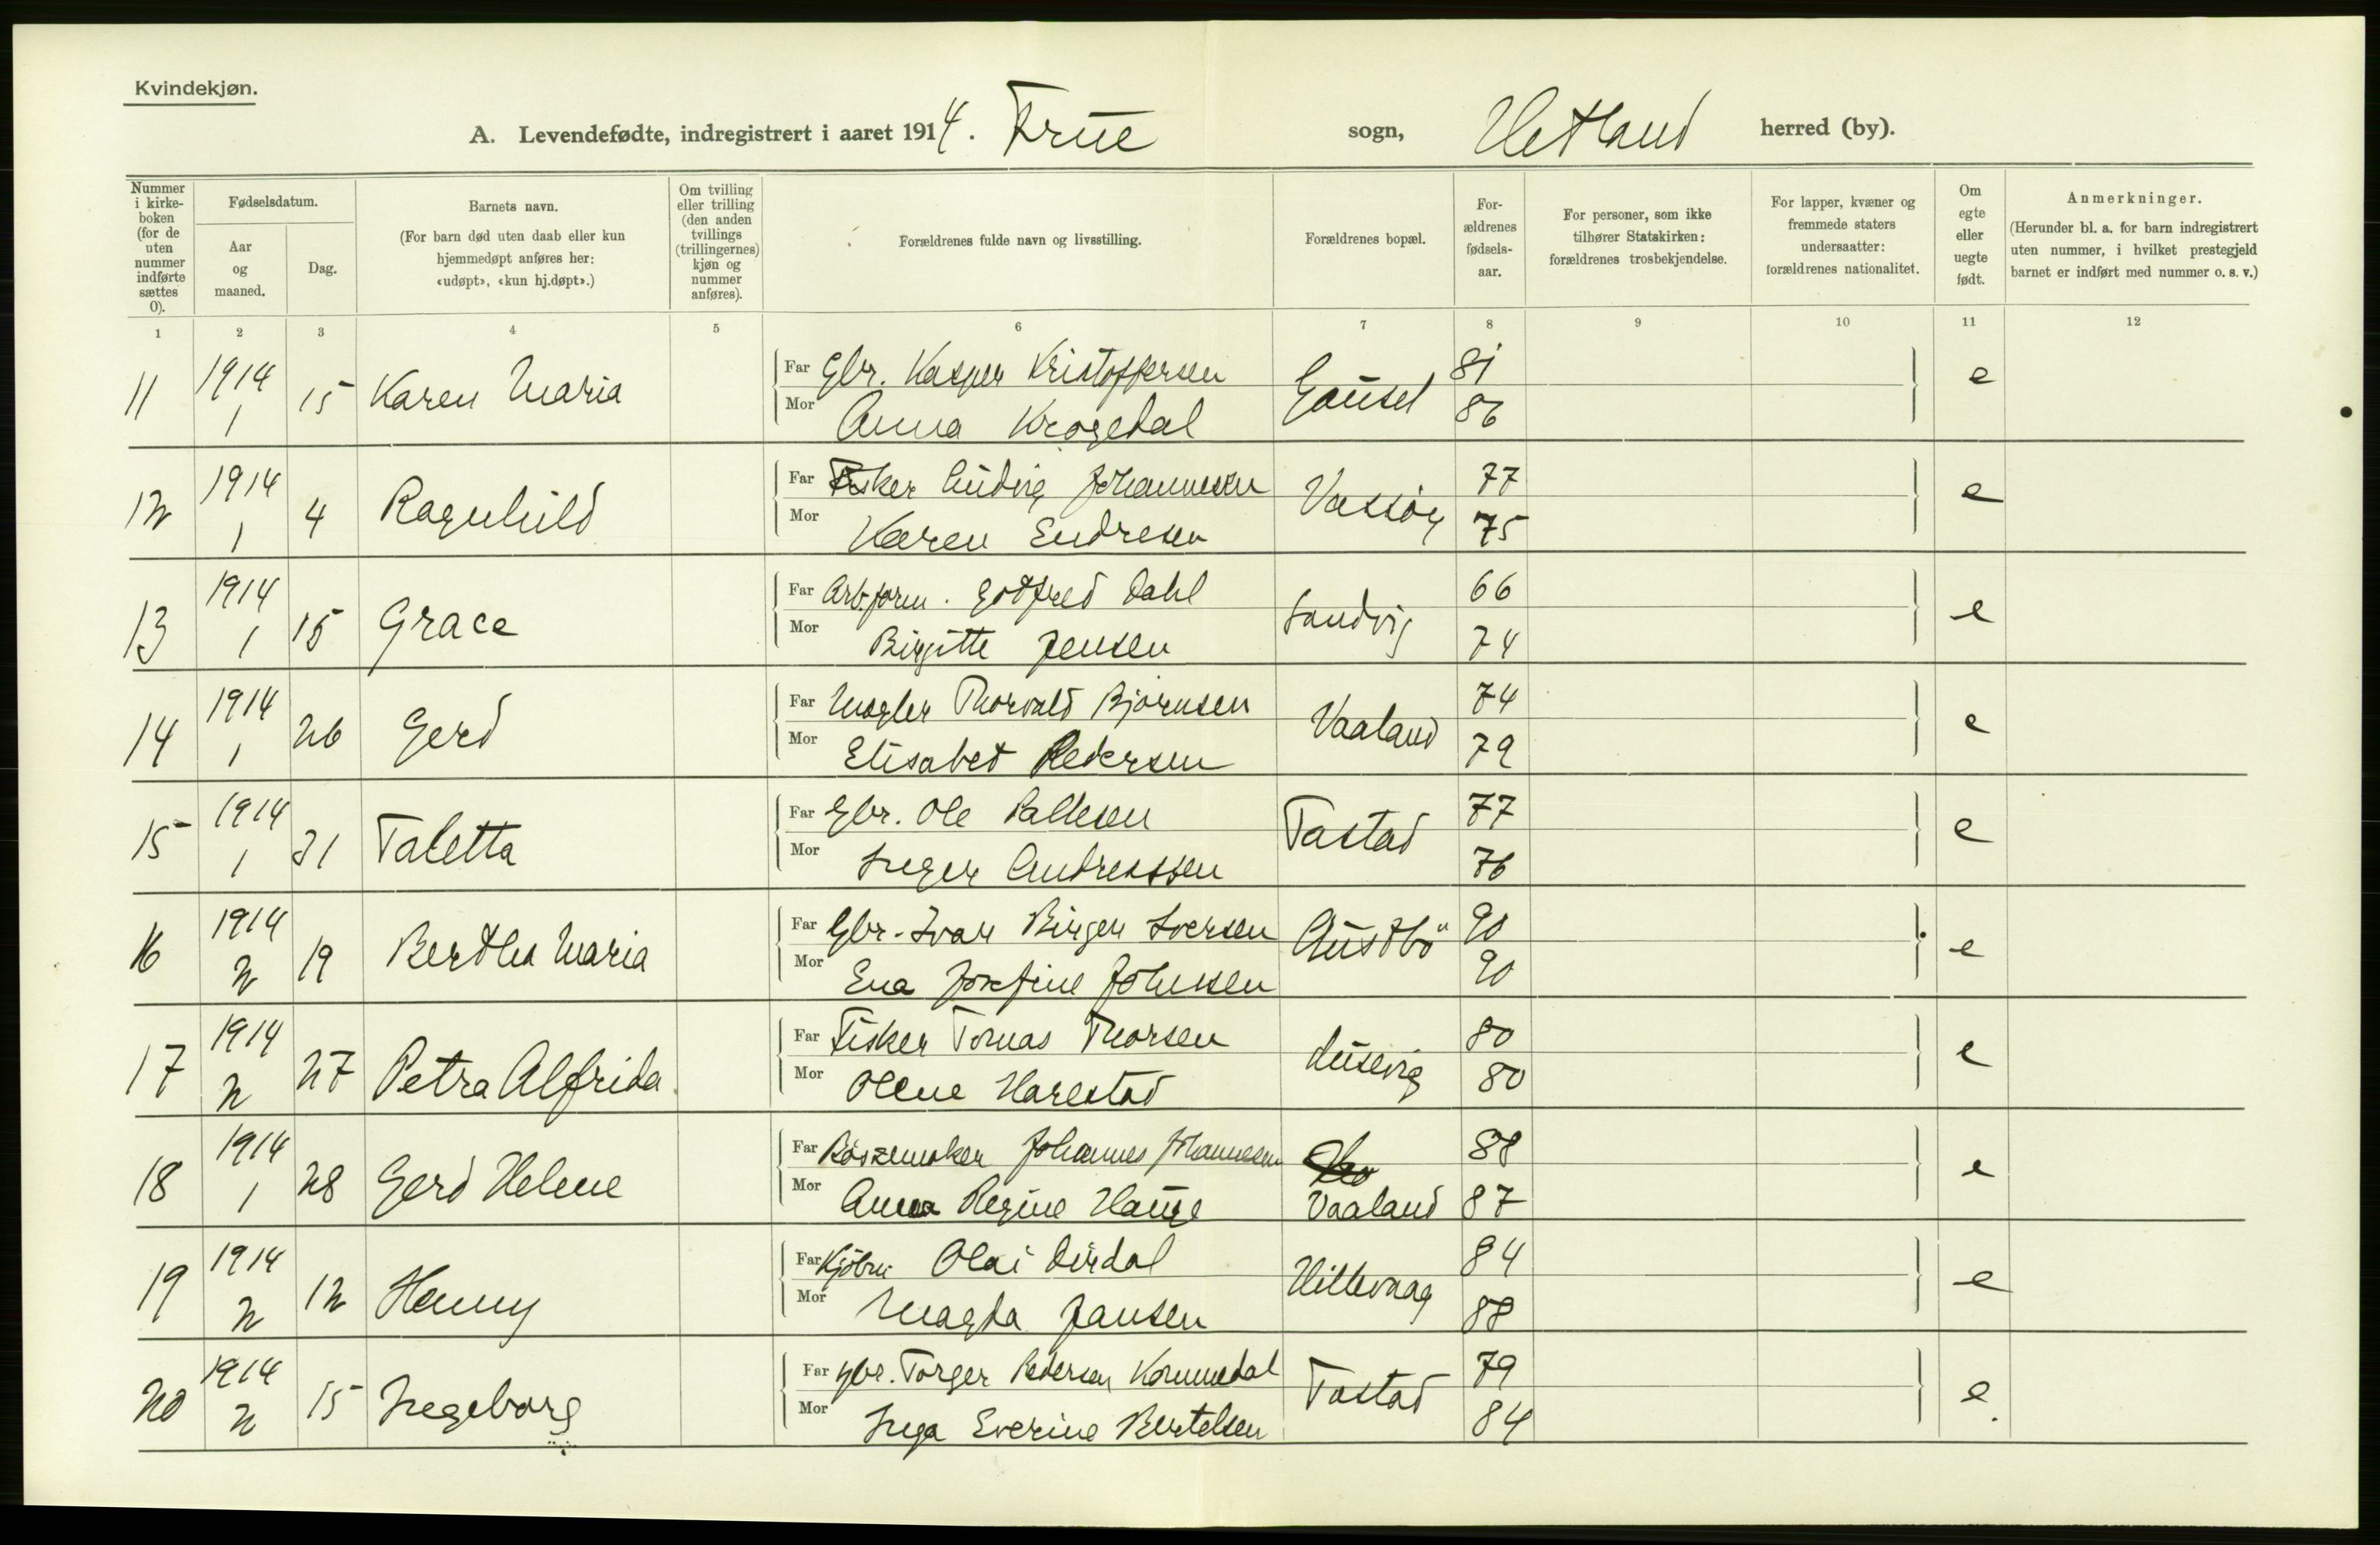 Kvindekjøn.
A. Levendefødte, indregistrert i aaret 1914. Frue sogn, Hetland herred (by).
Nummer i kirkeboken (for de uten nummer indførte sættes 0).
Fødselsdatum.
Aar og maaned.
Dag.
Barnets navn.
(For barn død uten daab eller kun hjemmedøpt anføres her: «udøpt», «kun hj.døpt».)
Om tvilling eller trilling (den anden tvillings (trillingernes) kjøn og nummer anføres).
Forældrenes fulde navn og livsstilling.
Forældrenes bopæl.
Forældrenes fødselsaar.
For personer, som ikke tilhører Statskirken: forældrenes trosbekjendelse.
For lapper, kvæner og fremmede staters undersaatter: forældrenes nationalitet.
Om egte eller uegte født.
Anmerkninger.
(Herunder bl. a. for barn indregistrert uten nummer, i hvilket prestegjeld barnet er indført med nummer o. s. v.)
1 2 3 4 5 6 7 8 9 10 11 12
11 1914 1 15 Karen Maria Far Gbr. Kasper Kristoffersen Gausel 81 e
Mor Anna Krogedal 86
12 1914 1 4 Ragnhild Far Fisker Ludvig Johannesen Vassöy 77 e
Mor Karen Endresen 75
13 1914 1 15 Grace Far Arb.form. Godtfred Dahl Sandvig 66 e
Mor Birgitte Jensen 74
14 1914 1 26 Gerd Far Mægler Thorvald Bjørnsen Vaaland 74 e
Mor Elisabet Pedersen 79
15 1914 1 31 Taletta Far Gbr. Ole Pallesen Tastad 77 e
Mor Inger Andreassen 76
16 1914 2 19 Bertha Maria Far Gbr. Ivar Birger Iversen Austbö 90 e
Mor Ena Josefine Johnsen 90
17 1914 2 27 Petra Alfrida Far Fisker Tomas Thorsen Dusevig 80 e
Mor Olene Harestad 80
18 1914 1 28 Gerd Helene Far Bössemaker Johannes Johannesen 88 e
Mor Anna Regine Hauge Vaaland 87
19 1914 2 12 Henny Far Kjöbm Olai Dirdal Hillevaag 84 e
Mor Magda Jansen 88
20 1914 2 15 Ingeborg Far Gbr. Torger Pedersen Kommedal Tastad 79 e
Mor Inga Everine Bertelsen 84